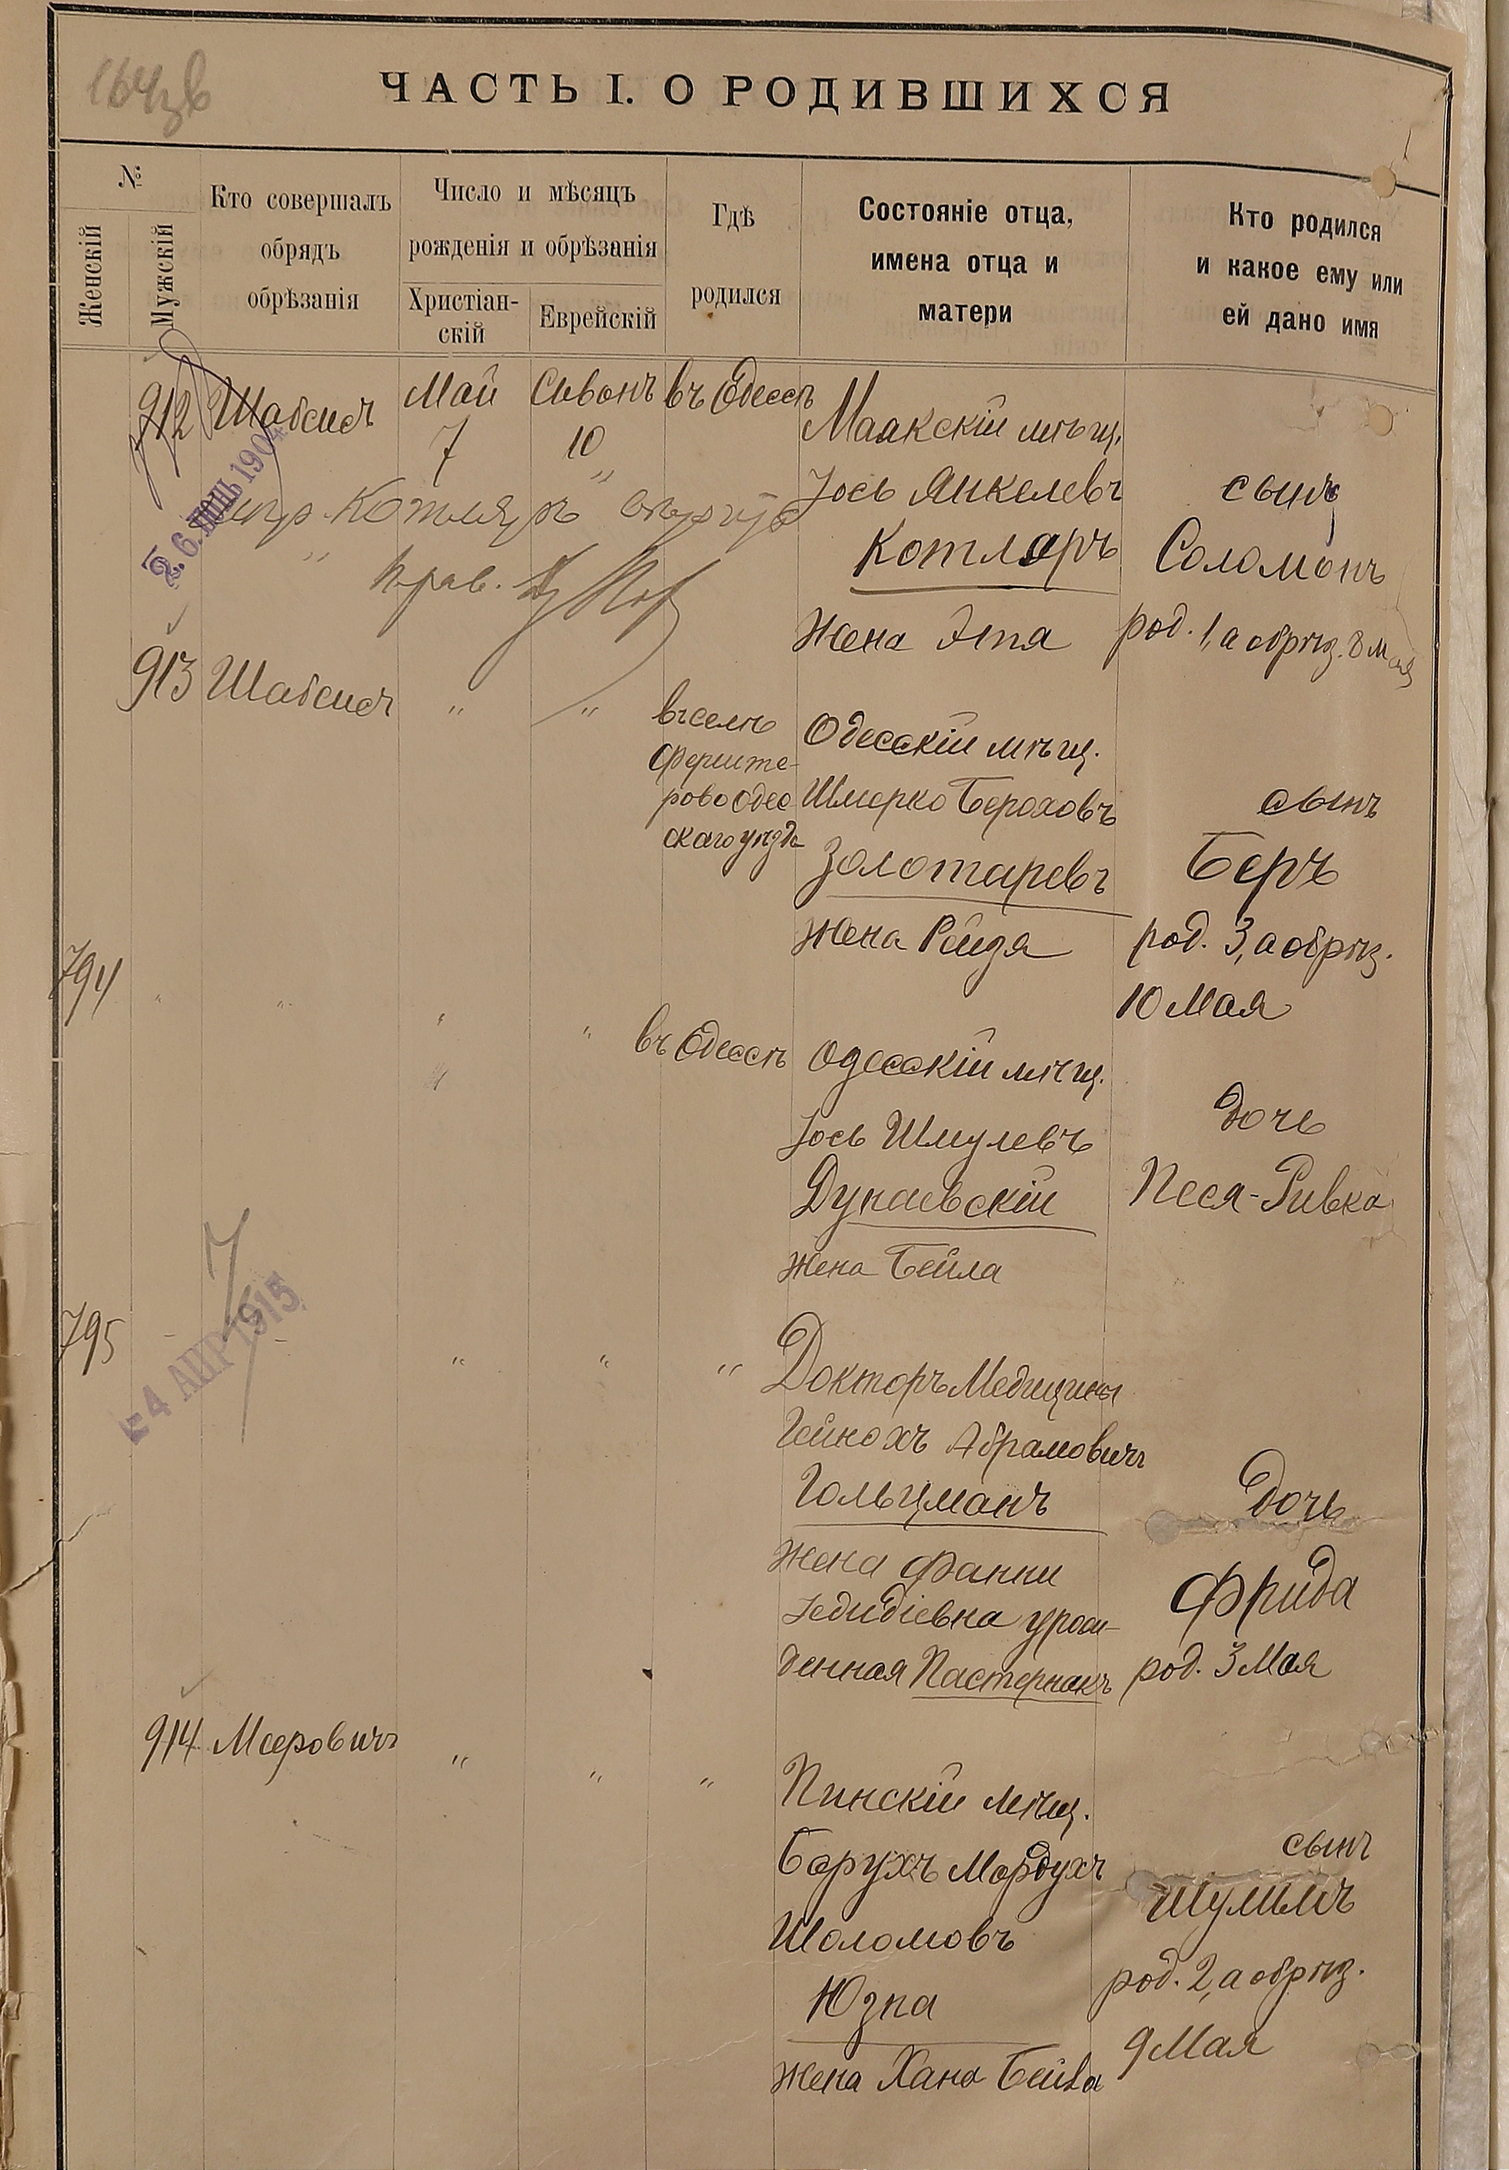 164 зв
ЧАСТЬ I. О РОДИВШИХСЯ
№
Женскій
Мужскій
Кто совершалъ
обрядъ
обрѣзанія
Число и мѣсяцъ
рожденія и обрѣзанія
Христіан-
скій
Еврейскій
Гдѣ
родился
Состояніе отца,
имена отца и
матери
Кто родился
и какое ему или
ей дано имя
912 Шабсисъ Май Сивонъ въ Одессѣ
7 10
Маакскій мѣщ.
Іось Янкелевъ
Котляръ
Жена Этя
сынъ
Соломонъ
род. 1, а обрѣз. 8 мая
Котляръ
6 1904
913 Шабсисъ " "
въ селѣ
Фрейште-
рово Одес
скаго уѣзда
Одесскій мѣщ.
Шмерко Бероховъ
Золотаревъ
Жена Рейзя
сынъ
Беръ
род. 3, а обрѣз.
10 Мая
794 " " " " въ Одессѣ
Одесскій мѣщ.
Іось Шмулевъ
Дунаевскій
Жена Бейла
дочь
Песя-Ривка
795 - - " " "
4 АПР 1915
Докторъ Медицины
Гейнохъ Абрамовичъ
Гольцманъ
Жена Фанни
Іедидіевна урож-
денная Пастернакъ
дочь
Фрида
род. 3 Мая
914 Мееровичъ " " "
Пинскій мѣщ.
Борухъ Мордухъ
Шоломовъ
Юзпа
Жена Хана Бейла
сынъ
Шулимъ
род. 2, а обрѣз.
9 Мая